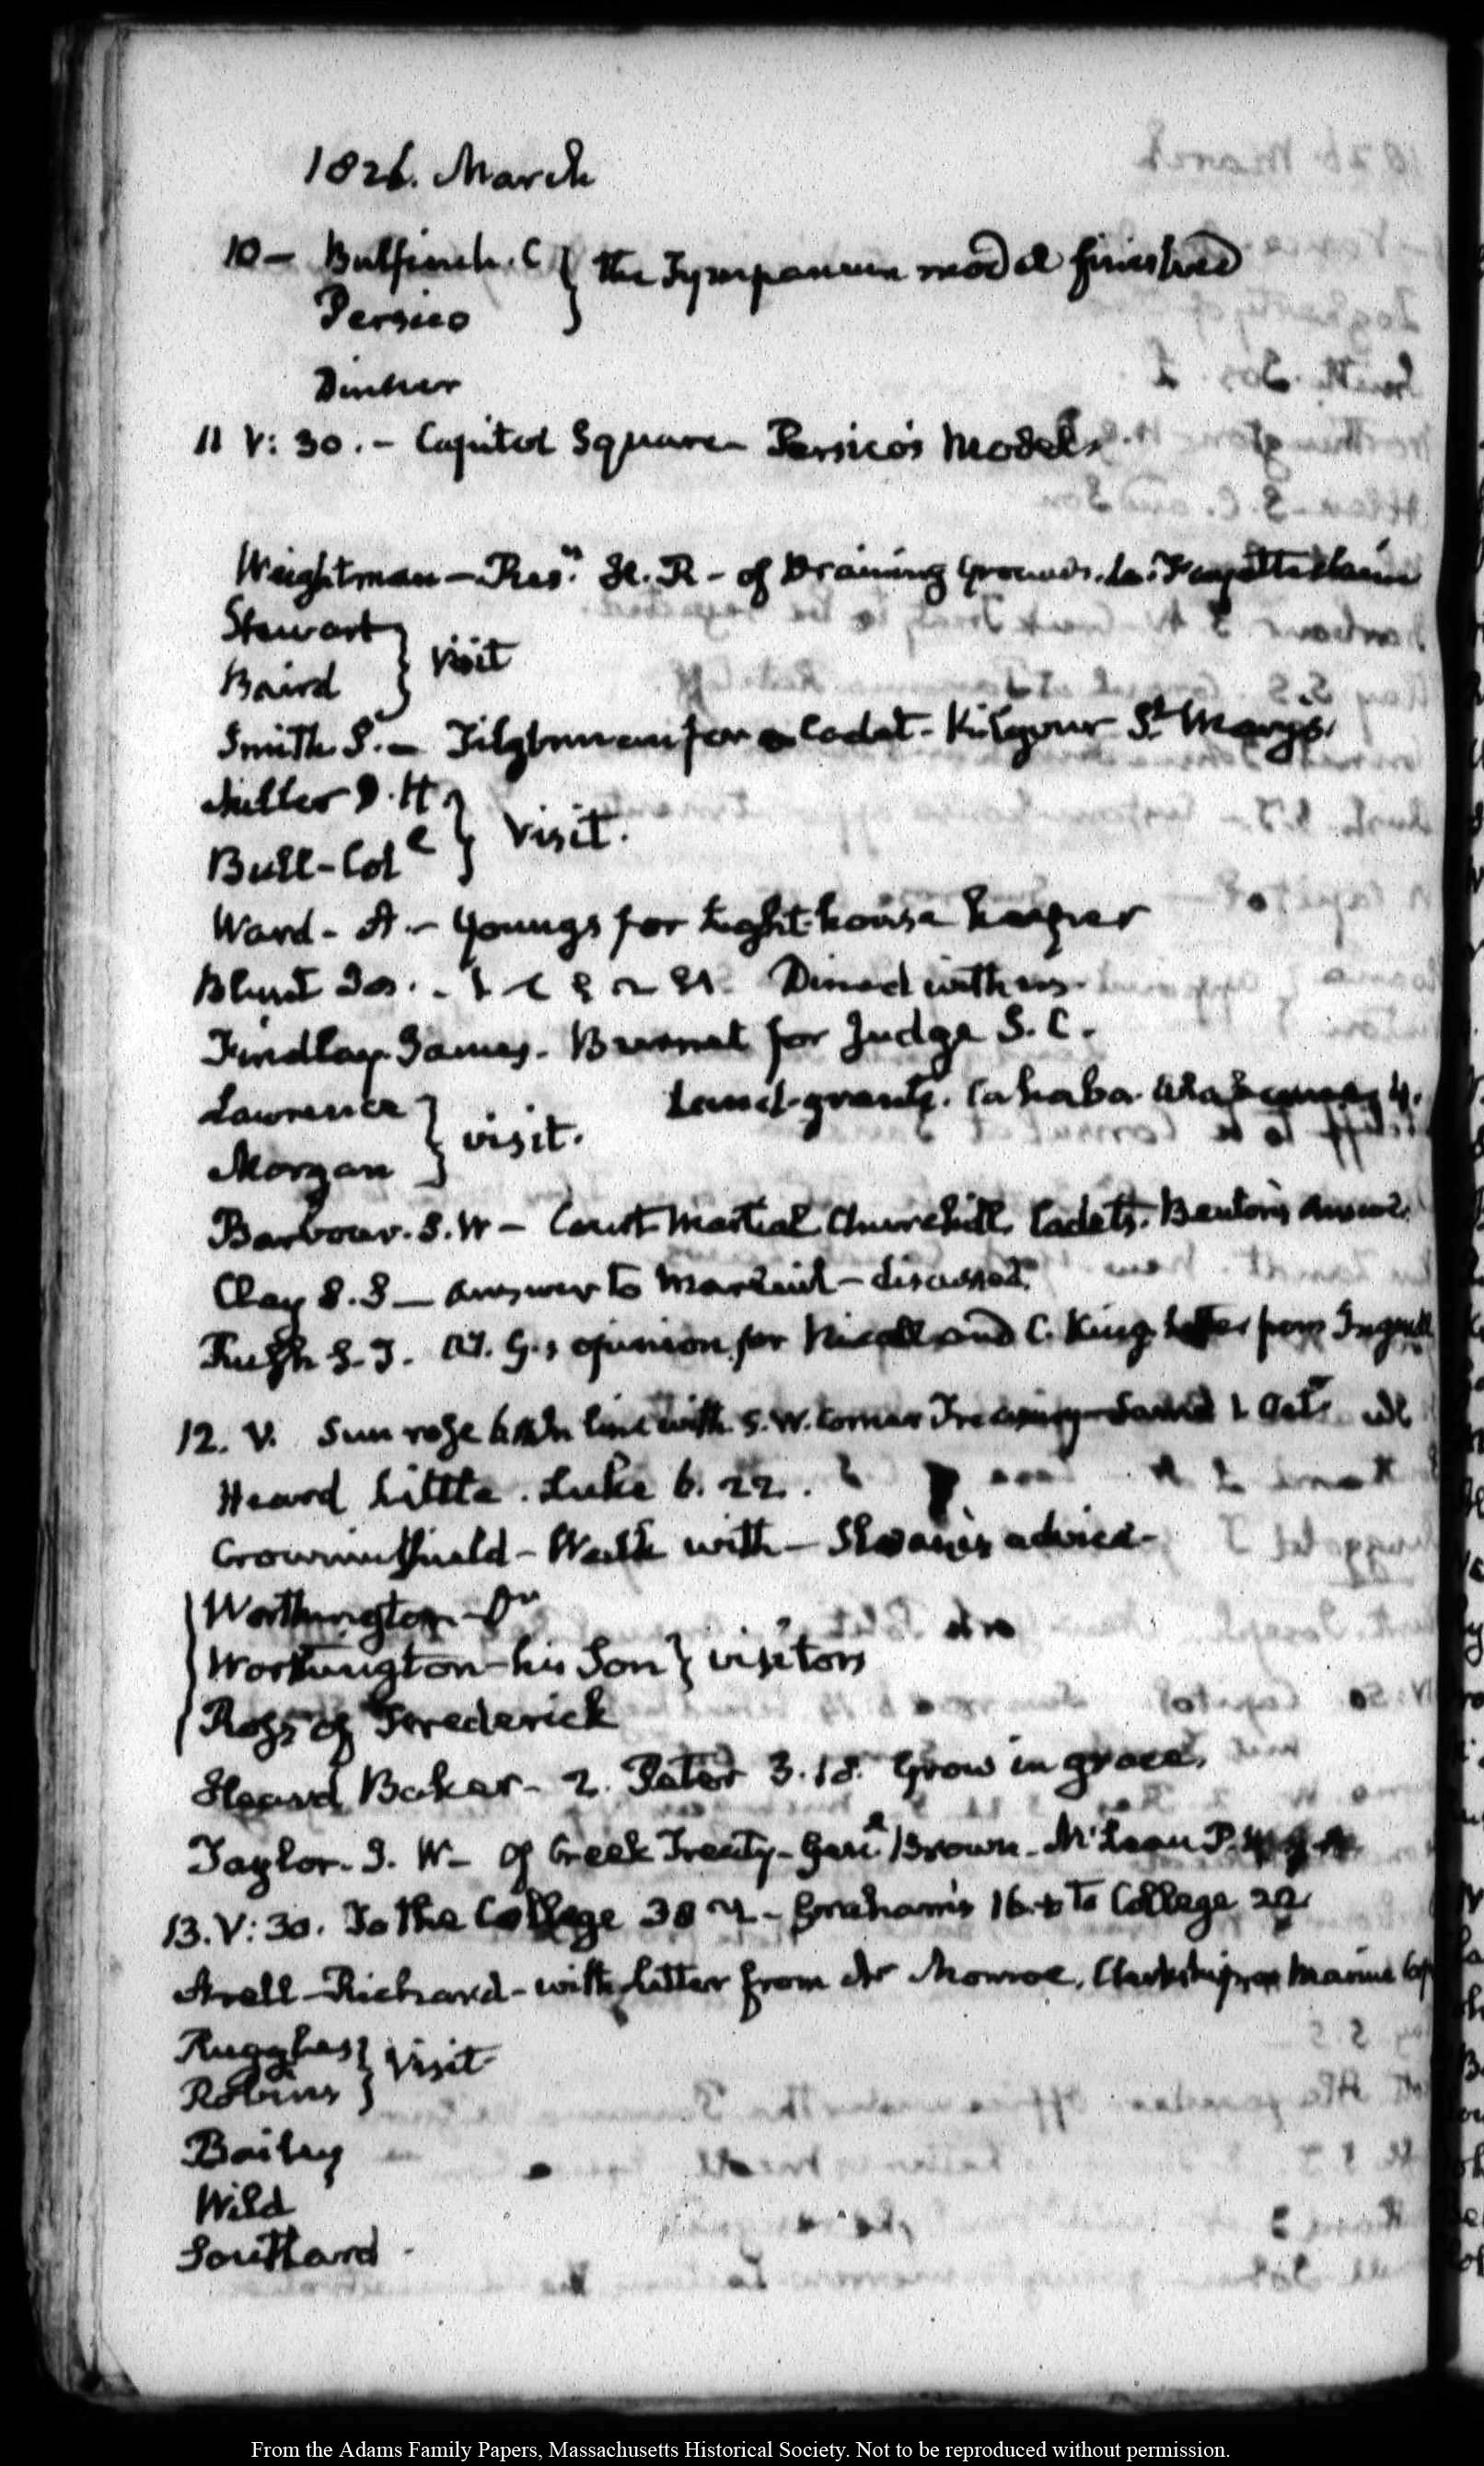 1826. March
10 — Bulfinch. C } the Tympanum model finished
Persico
Dinner
11 V: 30. — Capitol Square — Persico's Models
Weightman — Res.n H. R — of Draining Grounds. La
Stewart } visit
Baird
Smith S. — Tilghman for a Cadet — Kilgour St Mary's
Miller D. H. } visit.
Bull — Col
Ward — A. — Youngs for Light-house keeper
Blunt Jos. — Dined with us.
Findlay James. for Judge S. C.
Land-grants. Cahaba
Lawrence } visit.
Morgan
Barbour. S. W — Court Martial Churchill Cadets. Benton's
Clay S. S — answer to — discussed
Rush S. T. At. G.'s opinion for and C. King. letter from
12. V. Sun rose line with S. W. corner Treasury
Heard Little. Luke 6. 22.
Crowninshield — Walk with — Sloane's advice —
Worthington — Dr
Worthington — his Son } visitors
Ross of Frederick
Heard Baker — 2. Peter 3. 18. Grow in grace.
Taylor. J. W — of Creek Treaty — Genl Brown — McLean P. M. G.
13. V: 30. To the College 38 — Graham's 16. + To College 22
Arell — Richard — with letter from Mr Monroe. Clerkship Marine
Ruggles } visit
Robins
Bailey
Wild
Southard —
From the Adams Family Papers, Massachusetts Historical Society. Not to be reproduced without permission.